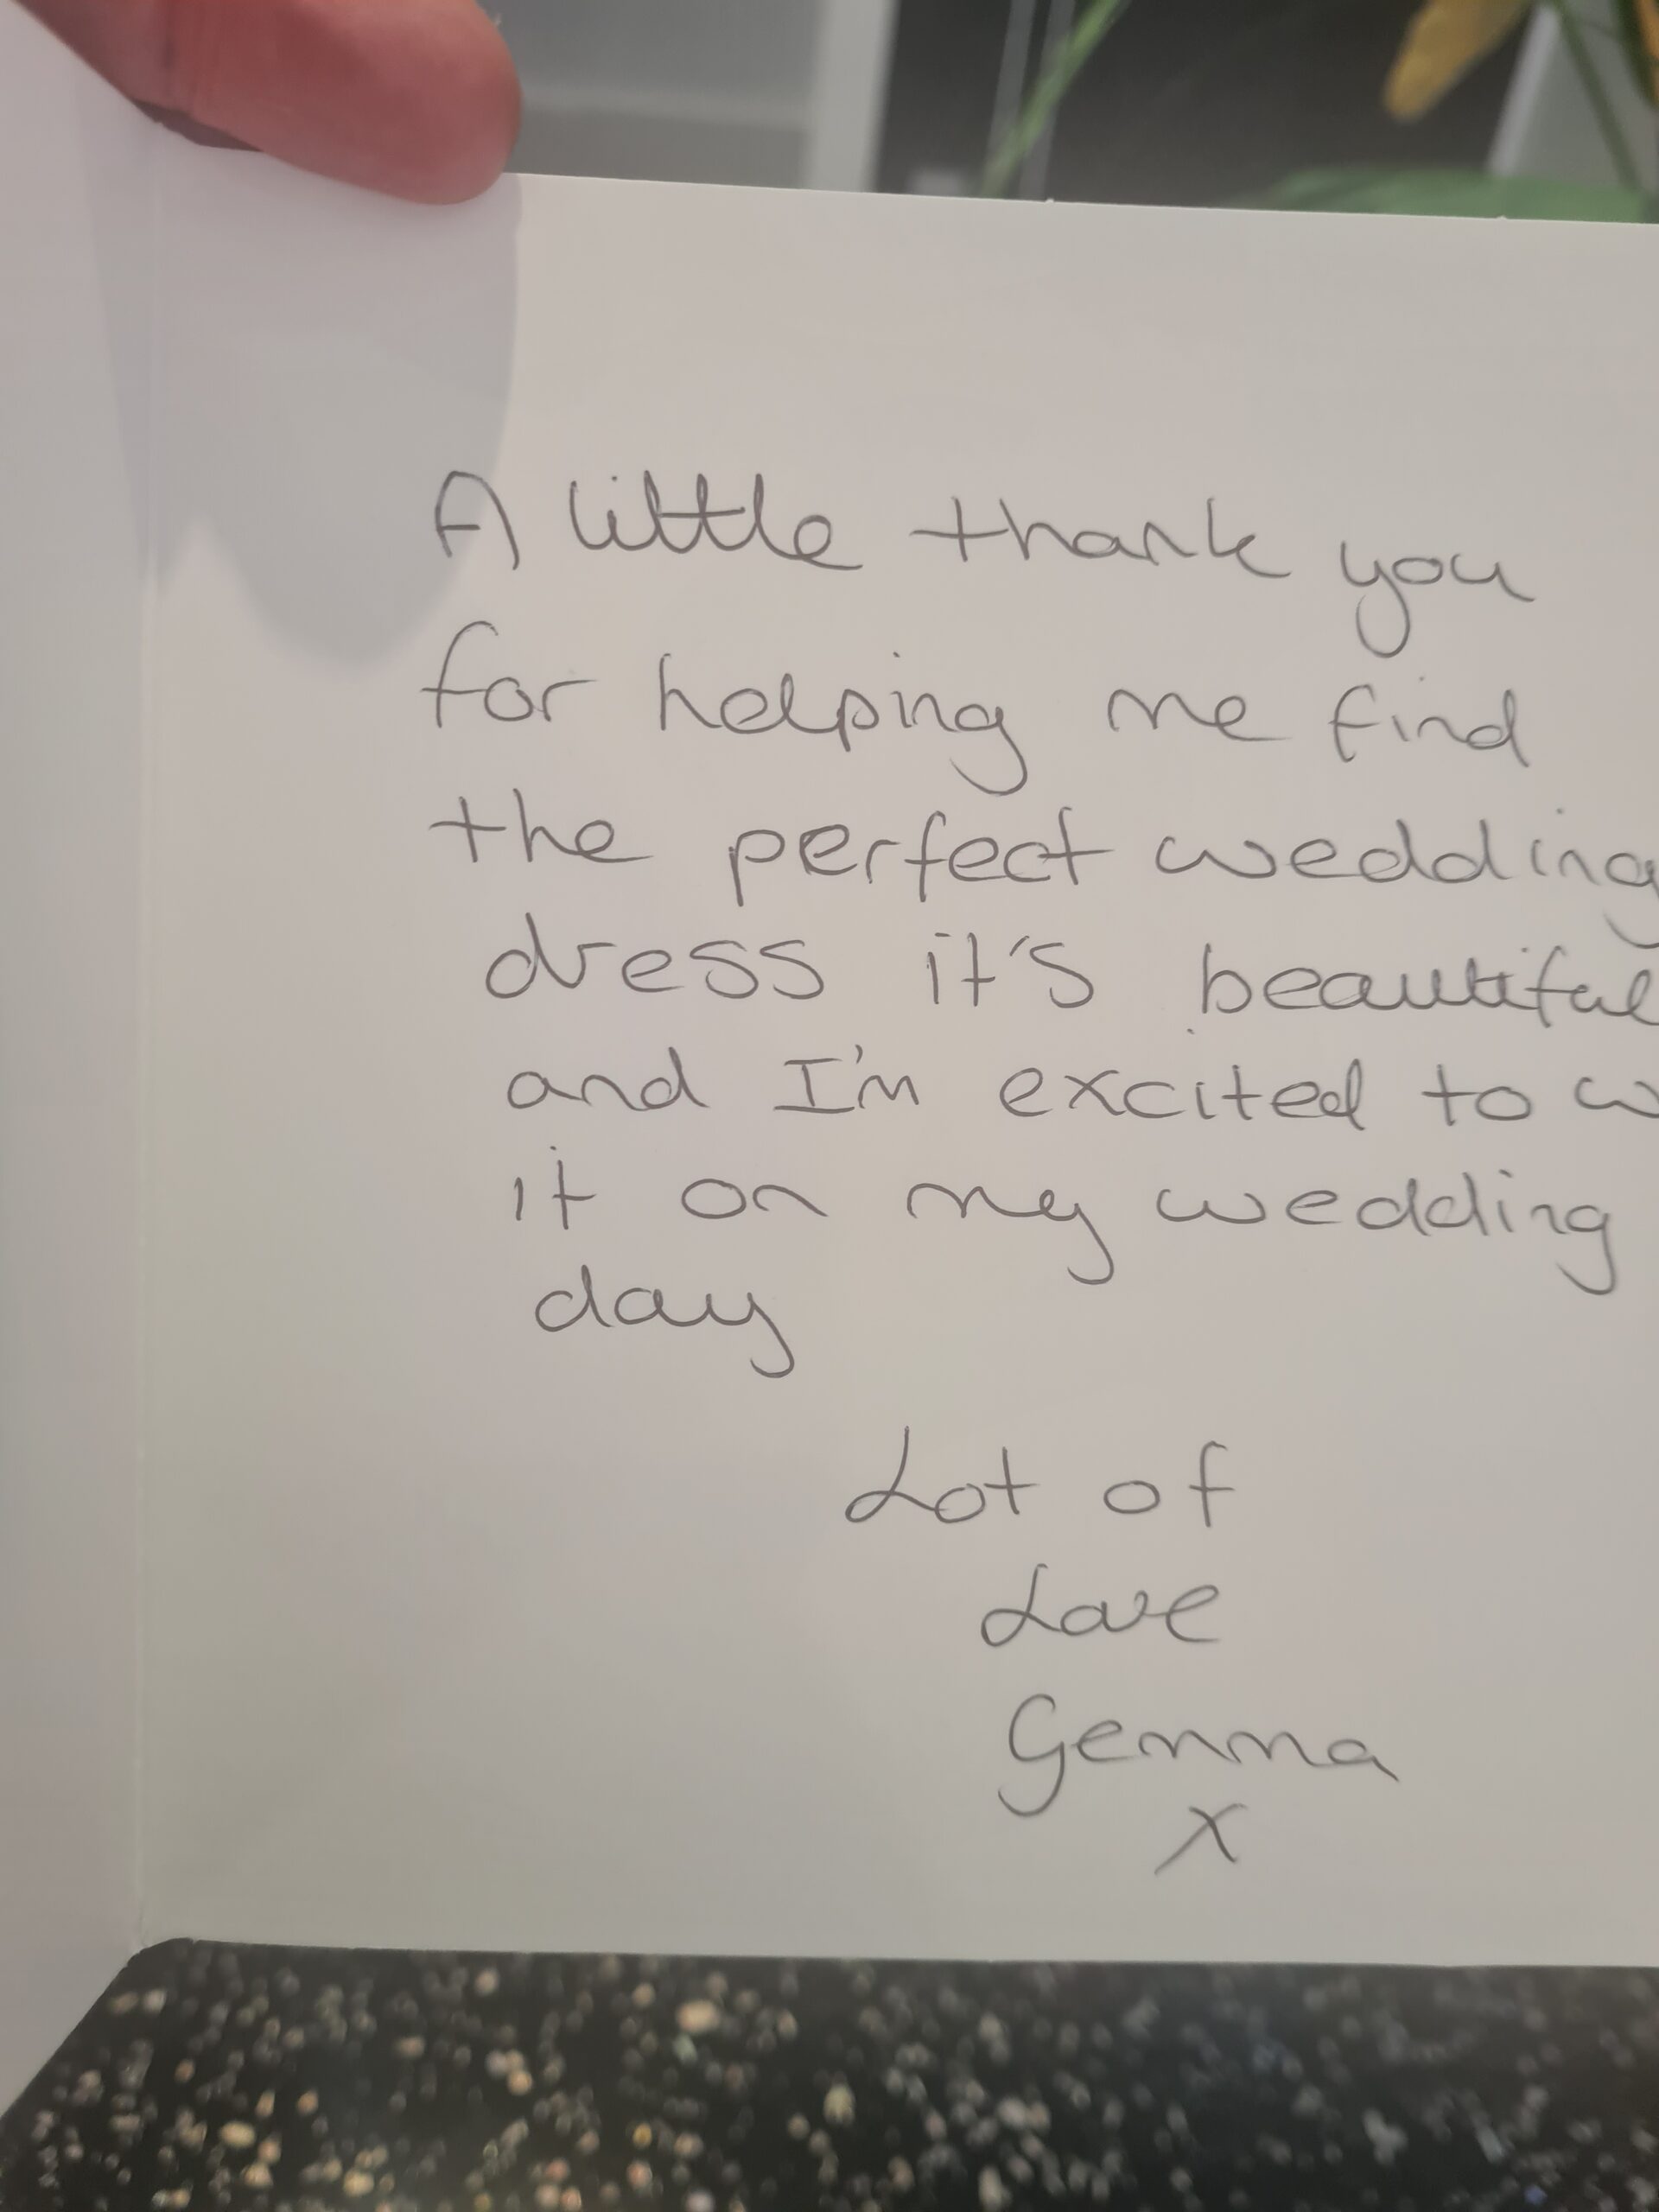 A little thank you
for helping me find
the perfect wedding
dress it's beautiful
and I'm excited to
it on my wedding
day
Lot of
Love
Gemma
x